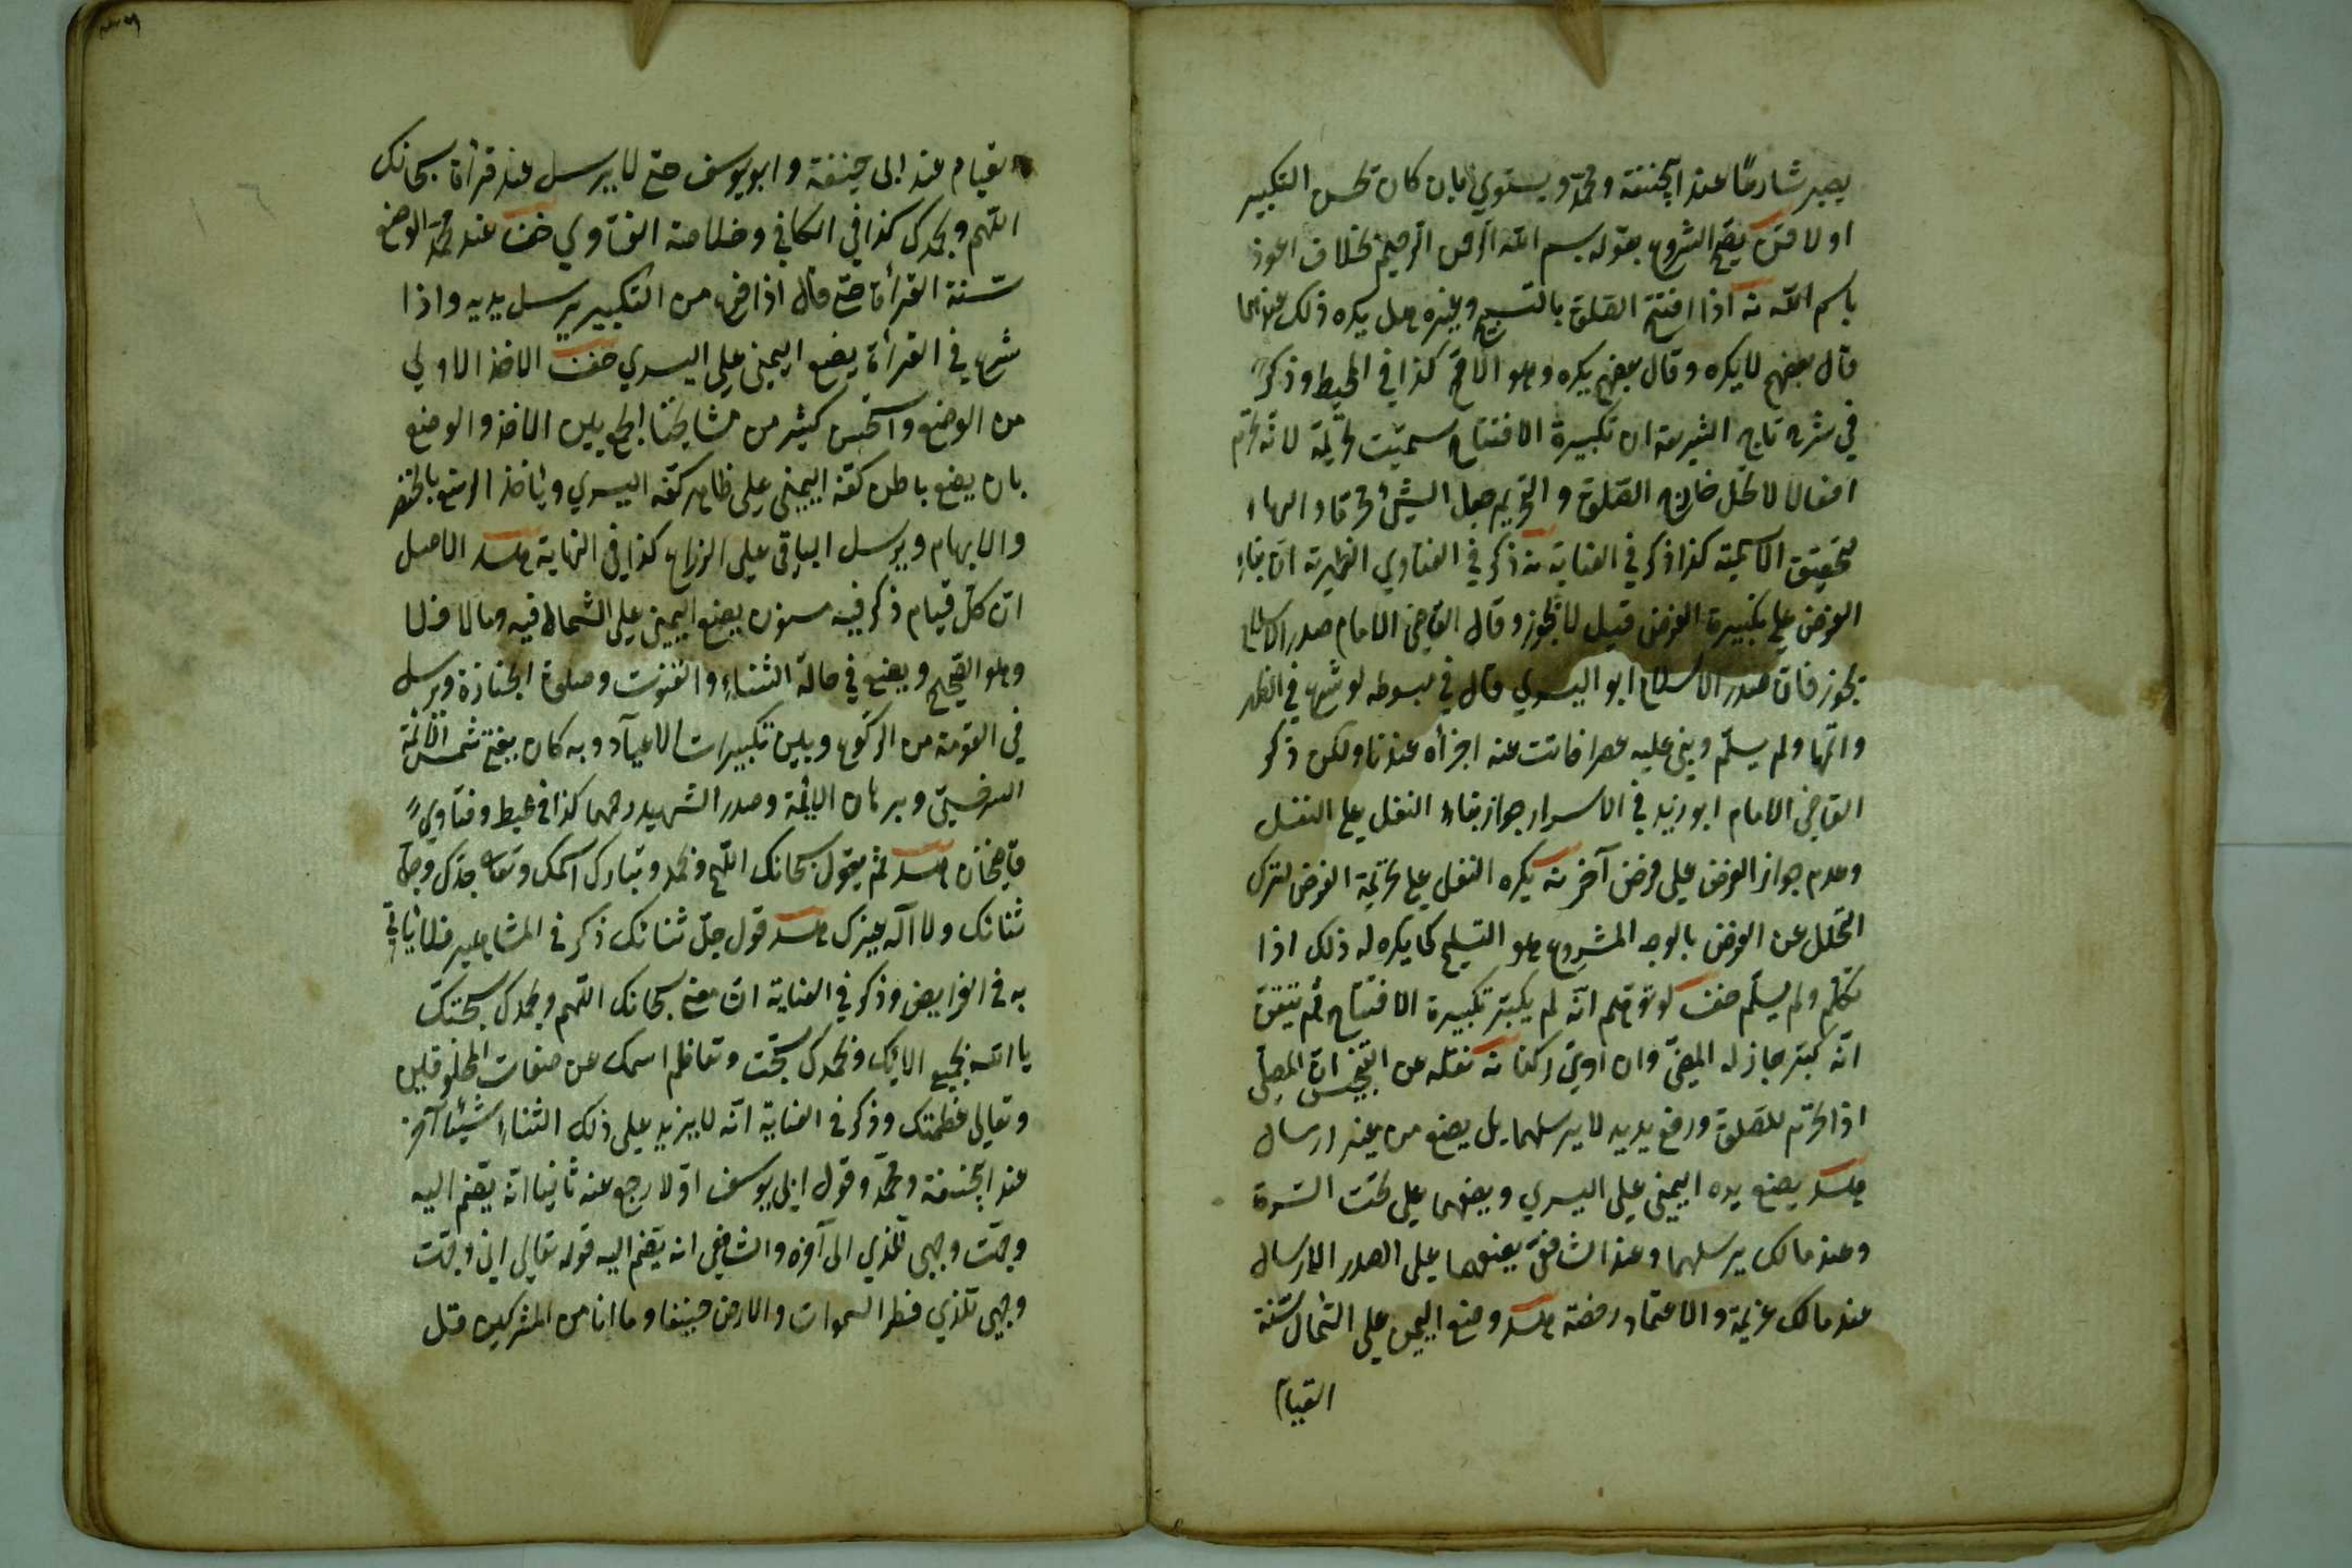 يصير شارعًا عند ابيحنيفة ومحمد ويستوي بان كان يحسن التكبير
او لا يصح الشروع بقوله بسم الله الرحمن الرحيم بخلاف اعوذ
باسم الله اذا افتتح الصلوة بالتسبيح وغيره هل يكره ذلك عندهما
قال بعضهم لا يكره وقال بعضهم يكره وهو الاصح كذا في المحيط وذكر
في شرح تاج الشريعة ان تكبيرة الافتتاح سميت تحريمة لانه يحرم
افعالا لا تحل خارج الصلوة والتحريم جعل الشيء محرما والهاء
لتحقيق الاسمية كذا ذكر في العناية ذكر في الفتاوي الظهيرية ان بناء
الفرض على تكبيرة الفرض قيل لا يجوز وقال القاضي الامام صدر الاسلام
يجوز فان صدر الاسلام ابو اليسري قال في مبسوطه لو شرع في الظهر
واتمها ولم يسلم وبنى عليه عصرا فاتت عنه اجزأه عندنا ولكن ذكر
القاضي الامام ابو زيد في الاسرار جواز بناء النفل على النفل
وعدم جواز الفرض على فرض آخر يكره النفل على تحريمة الفرض لترك
التحلل عن الفرض بالوجه المشروع هو التسليم كما يكره له ذلك اذا
تكلم ولم يسلم لو توهم انه لم يكبر تكبيرة الافتتاح ثم تيقن
انه كبر جاز له المضي وان ادى ركنا نقله عن التجنيس ان المصلي
اذا تحرم للصلوة ورفع يديه لا يرسلهما بل يضع من غير ارسال
يضع يده اليمنى على اليسري ويضعهما على تحت السرة
وعند مالك يرسلهما وعند الشافعي يضعهما على الصدر الارسال
عند مالك عزيمة والاعتماد رخصة وضع اليمين على الشمال سنة
القيام
القيام عند ابى حنيفة وابو يوسف حتى لا يرسل عند قرأة سبحانك
اللهم وبحمدك كذا في الكافي وخلاصة الفتاوي عند محمد الوضع
سنة القرأة حتى قال اذا فرغ من التكبير يرسل يديه واذا
شرع في القرأة يضع اليمنى على اليسري الاخذ الاولي
من الوضع واستحسن كثير من مشايخنا الجمع بين الاخذ والوضع
بان يضع باطن كفه اليمنى على ظاهر كفه اليسري ويأخذ الرسغ بالخنصر
والابهام ويرسل الباقي على الذراع كذا في النهاية الاصل
ان كل قيام ذكر فيه مسنون يضع اليمين على الشمال فيه وما لا فلا
وهو الصحيح ويضع في حالة الثناء والقنوت وصلوة الجنازة ويرسل
في القومة من الركوع وبين تكبيرات الاعياد وبه كان يفتي شمس الائمة
السرخسي وبرهان الائمة وصدر الشهيد رحمهما كذا في محيط وفتاوي
قاضيخان ثم يقول سبحانك اللهم وبحمد وتبارك اسمك وتعالى جدك وجل
ثنائك ولا اله غيرك قول جل ثنائك ذكر في المشاهير فلا يأتي
به في الفرايض وذكر في العناية ان معنى سبحانك اللهم وبحمدك سبحتك
يا الله بجميع الائك وبحمدك سبحت وتعاظم اسمك عن صفات المخلوقين
وتعالى عظمتك وذكر في العناية انه لا يزيد على ذلك الثناء شيئا آخر
عند ابيحنيفة ومحمد وقول ابي يوسف اولا رجع عنه ثانيا انه يضم اليه
وجهت وجهي للذي الى آخره والشافعي انه يضم اليه قوله تعالى اني وجهت
وجهي للذي فطر السموات والارض حنيفا وما انا من المشركين قبل